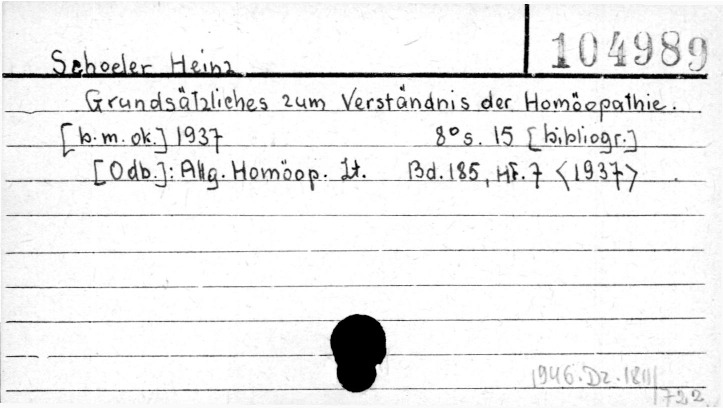 104989
Schoeler Heinz
Grundsätzliches zum Verständnis der Homöopathie.
[b.m.ok.] 1937 8° s. 15 [bibliogr.]
[Odb.]: Allg. Homöop. Zt. Bd. 185, Hf. 7 <1937>
1946. Dz. 1811/
722.